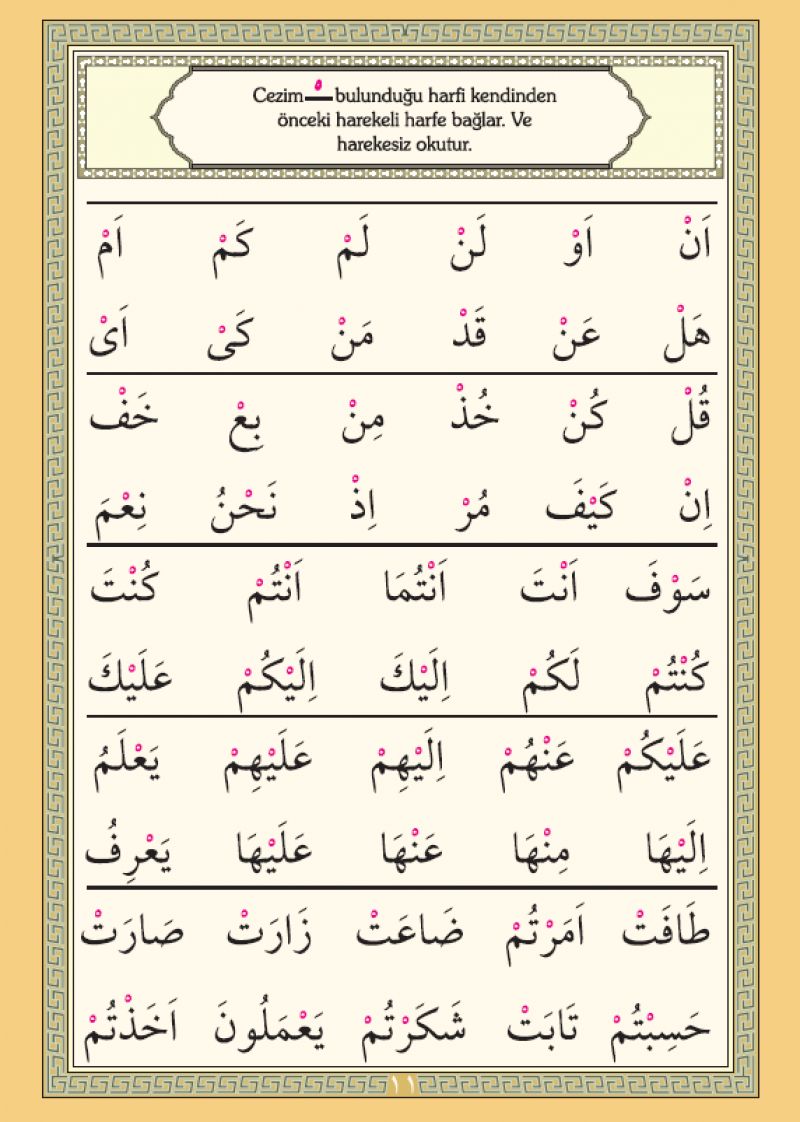 Cezim ـْ bulunduğu harfi kendinden
önceki harekeli harfe bağlar. Ve
harekesiz okutur.
اَنْ اَوْ لَنْ لَمْ كَمْ اَمْ
هَلْ عَنْ قَدْ مَنْ كَىْ اَىْ
قُلْ كُنْ خُذْ مِنْ بِعْ خَفْ
اِنْ كَيْفَ مُرْ اِذْ نَحْنُ نِعْمَ
سَوْفَ اَنْتَ اَنْتُمَا اَنْتُمْ كُنْتَ
كُنْتُمْ لَكُمْ اِلَيْكَ اِلَيْكُمْ عَلَيْكَ
عَلَيْكُمْ عَنْهُمْ اِلَيْهِمْ عَلَيْهِمْ يَعْلَمُ
اِلَيْهَا مِنْهَا عَنْهَا عَلَيْهَا يَعْرِفُ
طَافَتْ اَمَرْتُمْ ضَاعَتْ زَارَتْ صَارَتْ
حَسِبْتُمْ تَابَتْ شَكَرْتُمْ يَعْمَلُونَ اَخَذْتُمْ
١١